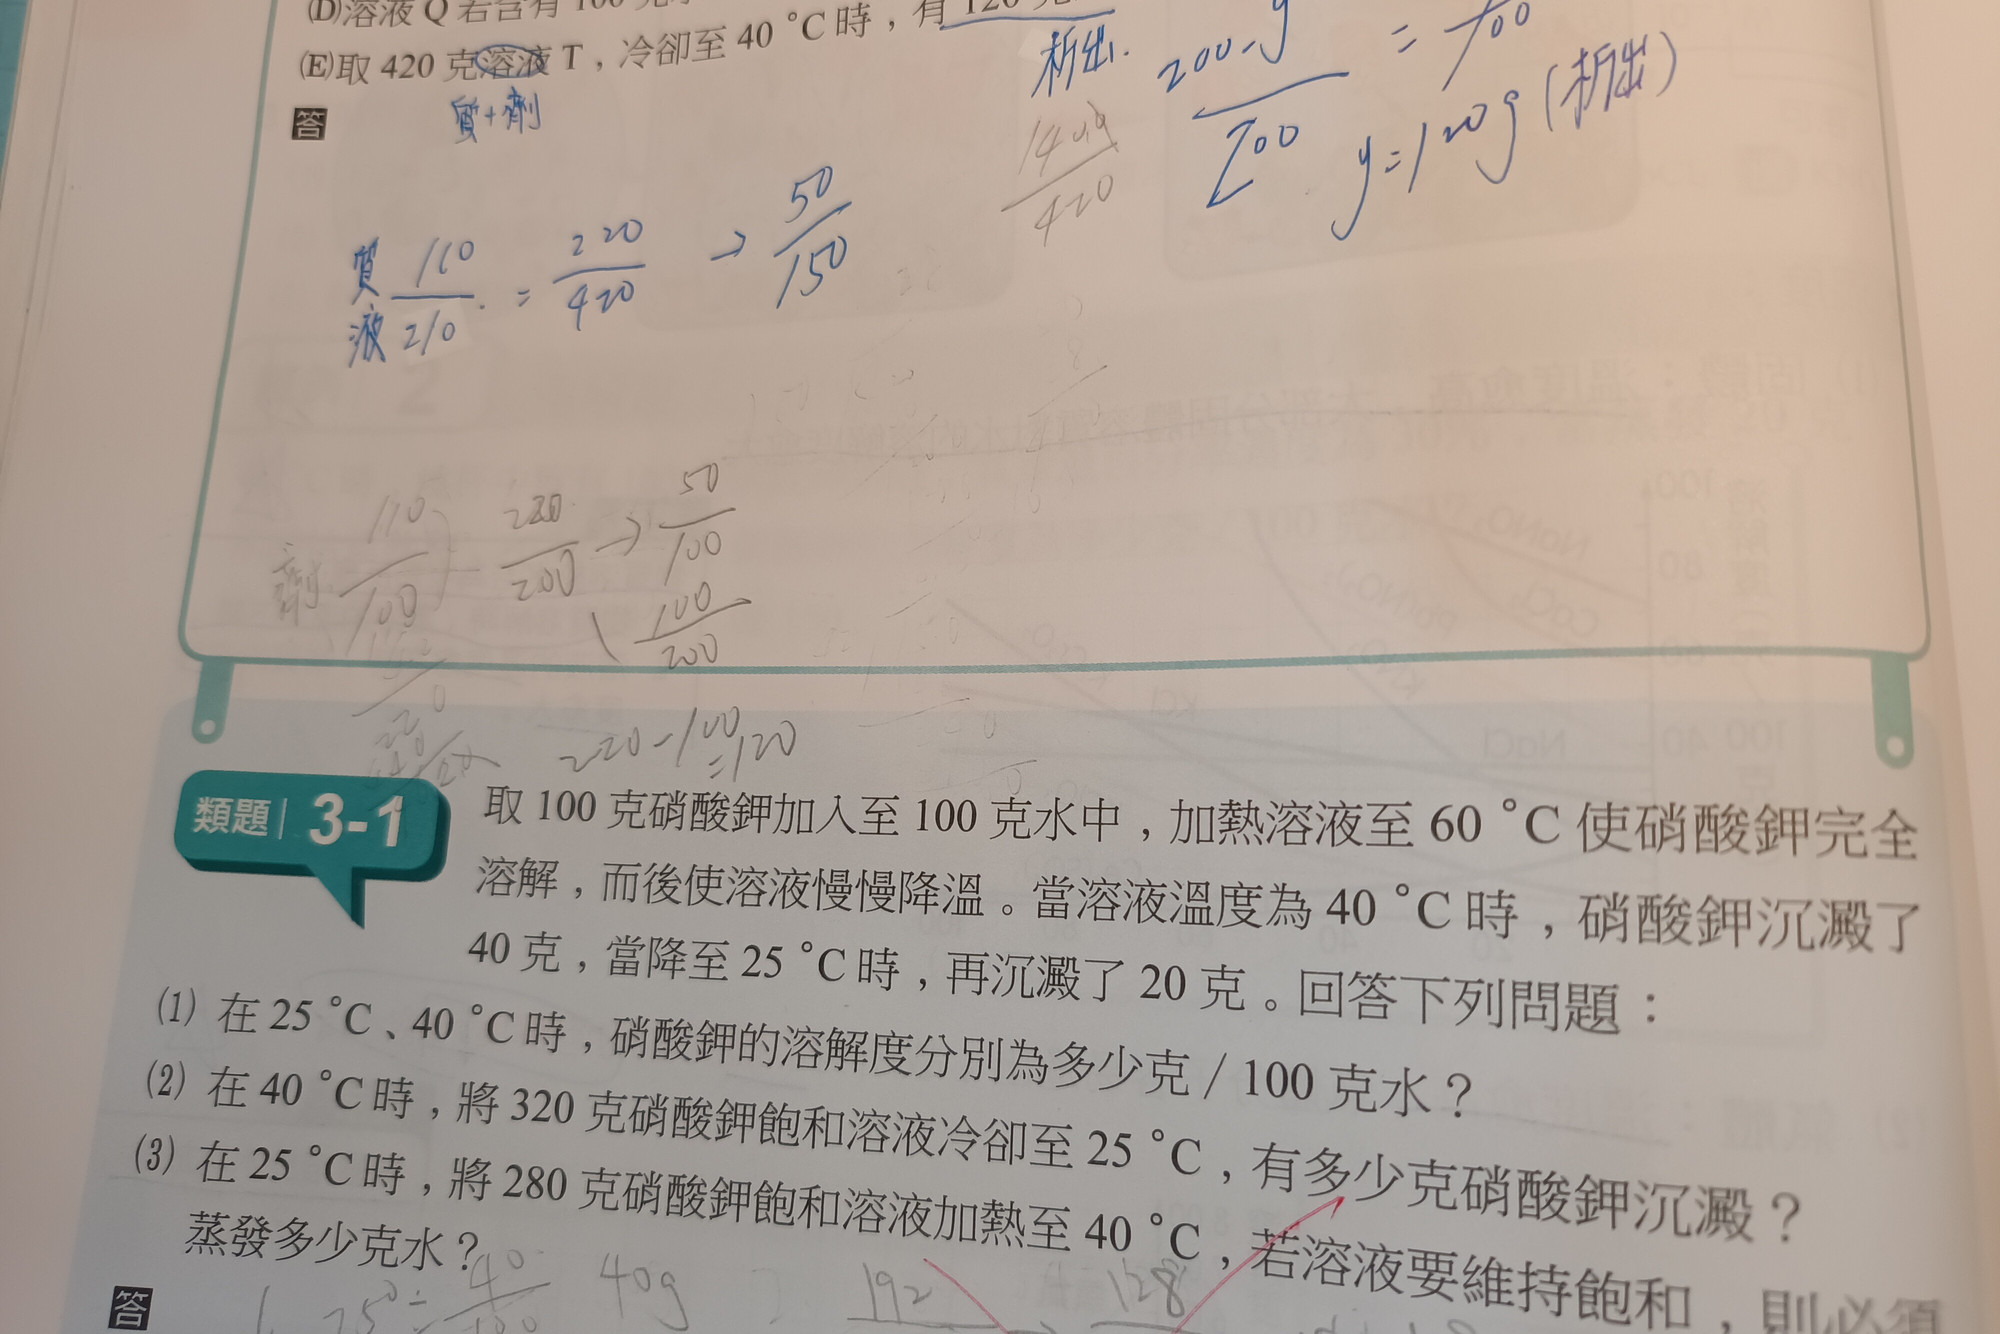 (D)溶液 Q 若含有 100 克
(E)取 420 克溶液 T，冷卻至 40 °C 時，有 120 克
析出.
質+劑
答
200-y
= 100
200
y=120g (析出)
140g
420
質 110 = 220 → 50
液 210 420 150
110 220 → 50
劑 100 200 100
100
200
220-100
=120
類題 3-1
取 100 克硝酸鉀加入至 100 克水中，加熱溶液至 60 °C 使硝酸鉀完全
溶解，而後使溶液慢慢降溫。當溶液溫度為 40 °C 時，硝酸鉀沉澱了
40 克，當降至 25 °C 時，再沉澱了 20 克。回答下列問題：
(1) 在 25 °C、40 °C 時，硝酸鉀的溶解度分別為多少克 / 100 克水？
(2) 在 40 °C 時，將 320 克硝酸鉀飽和溶液冷卻至 25 °C，有多少克硝酸鉀沉澱？
(3) 在 25 °C 時，將 280 克硝酸鉀飽和溶液加熱至 40 °C，若溶液要維持飽和，則必須
蒸發多少克水？
答
1. 25° = 40 40g 192 128
100